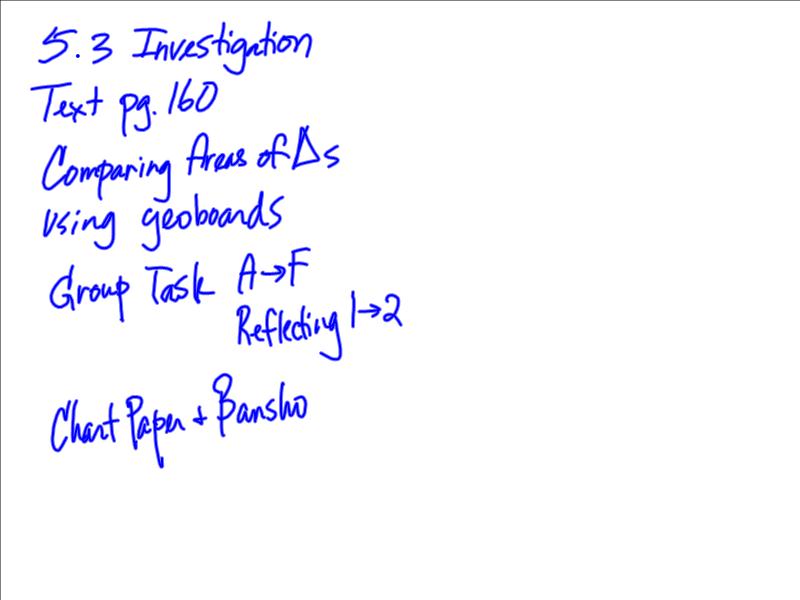 5.3 Investigation
Text pg. 160
Comparing Areas of Δs
using geoboards
Group Task A→F
Reflecting 1→2
Chart Paper + Bansho